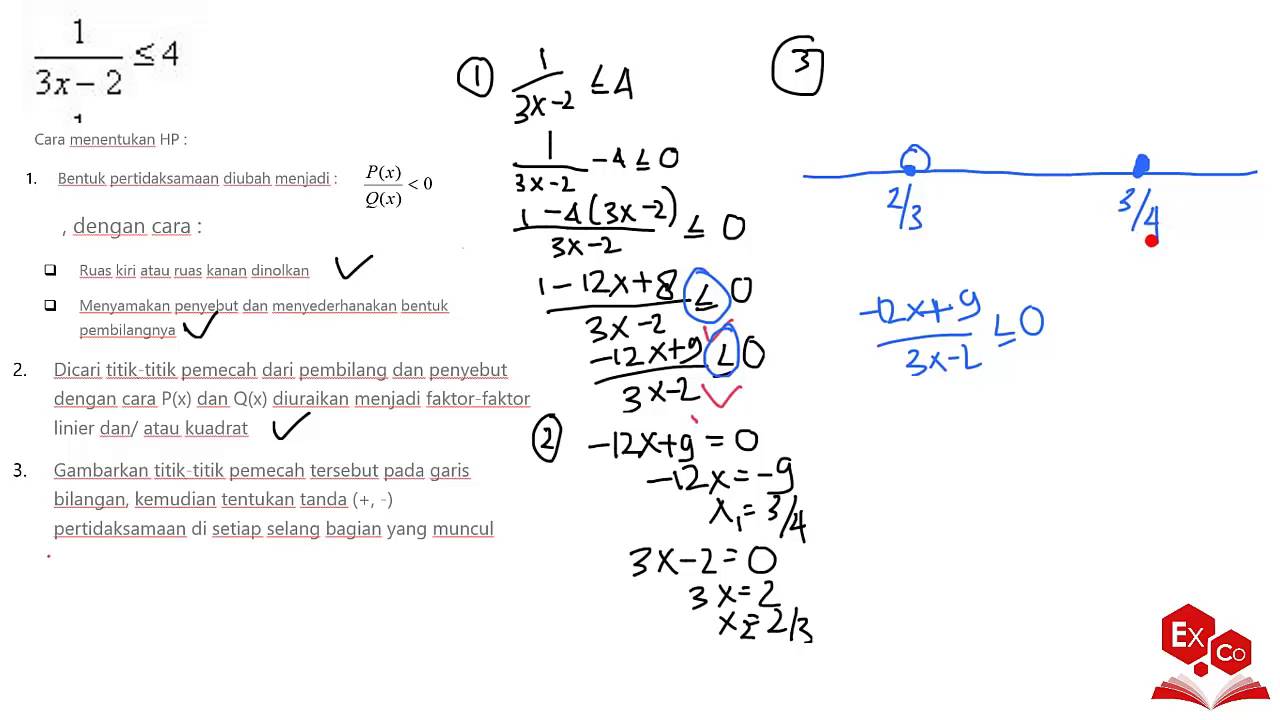 1/(3x − 2) ≤ 4
Cara menentukan HP :
1. Bentuk pertidaksamaan diubah menjadi : P(x)/Q(x) < 0
, dengan cara :
❑ Ruas kiri atau ruas kanan dinolkan ✓
❑ Menyamakan penyebut dan menyederhanakan bentuk
pembilangnya ✓
2. Dicari titik-titik pemecah dari pembilang dan penyebut
dengan cara P(x) dan Q(x) diuraikan menjadi faktor-faktor
linier dan/ atau kuadrat ✓
3. Gambarkan titik-titik pemecah tersebut pada garis
bilangan, kemudian tentukan tanda (+, -)
pertidaksamaan di setiap selang bagian yang muncul
① 1/(3x-2) ≤ 4
1/(3x-2) - 4 ≤ 0
(1 - 4(3x-2))/(3x-2) ≤ 0
(1 - 12x + 8)/(3x-2) ≤ 0
(-12x+9)/(3x-2) ≤ 0
② -12x+9 = 0
-12x = -9
x₁ = 3/4
3x-2 = 0
3x = 2
x₂ = 2/3
③
2/3 3/4
(-12x+9)/(3x-2) ≤ 0
Ex
Co